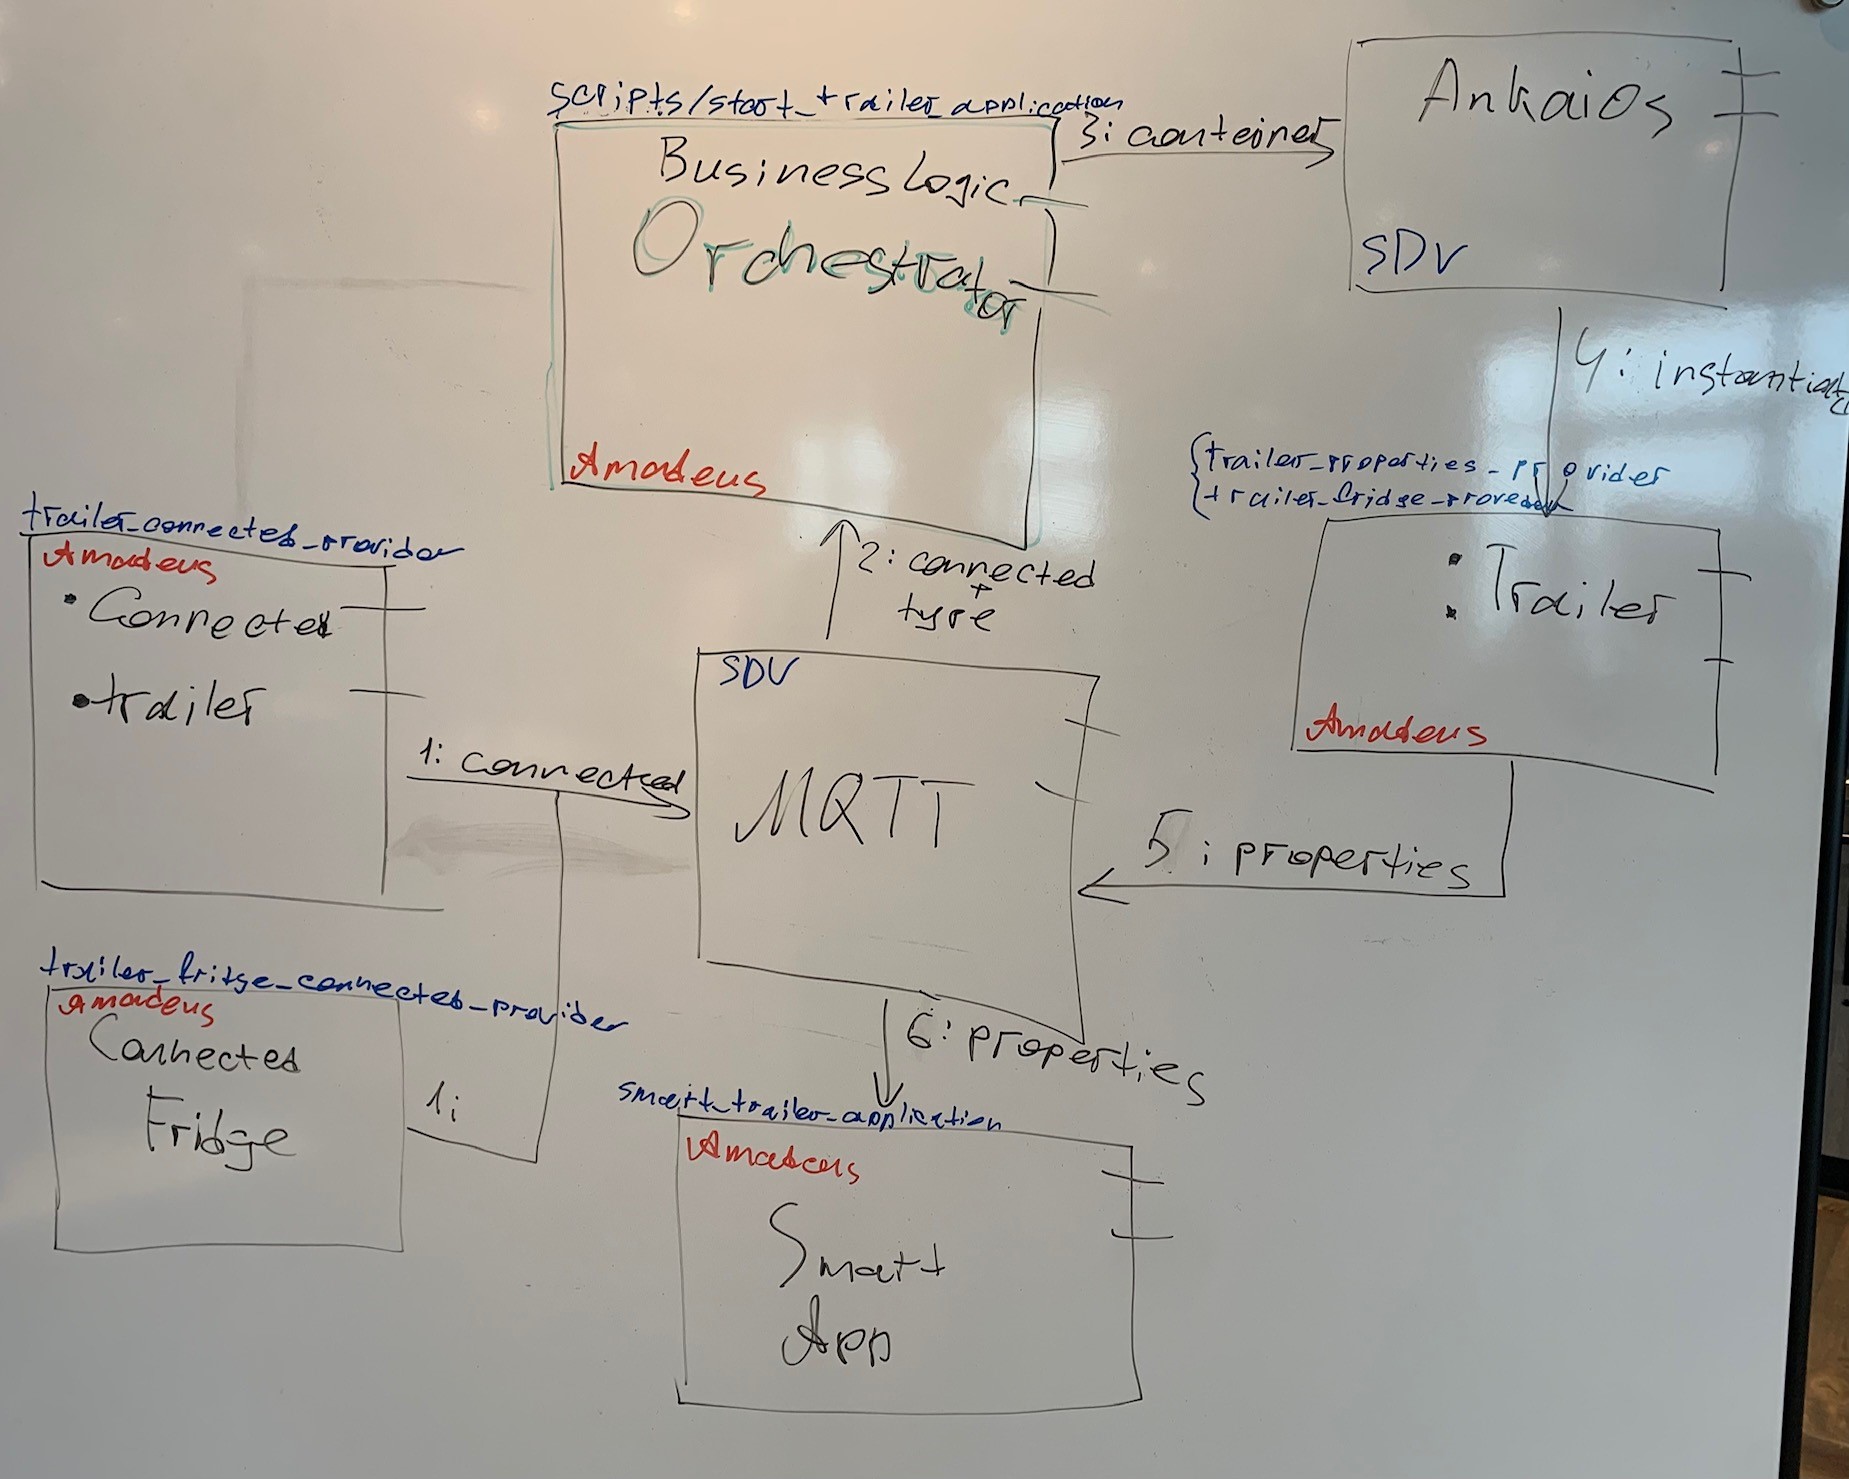 scripts/start_trailer_application
Business Logic
Orchestrator
Amadeus
3: container
Ankaios
SDV
4: instantiate
{trailer_properties_provider
{trailer_fridge_provider
: Trailer
Amadeus
trailer_connected_provider
Amadeus
• Connected
• trailer
2: connected
+
type
1: connected
SDV
MQTT
5: properties
trailer_fridge_connected_provider
Amadeus
Connected
Fridge
1:
6: properties
smart_trailer_application
Amadeus
Smart
App